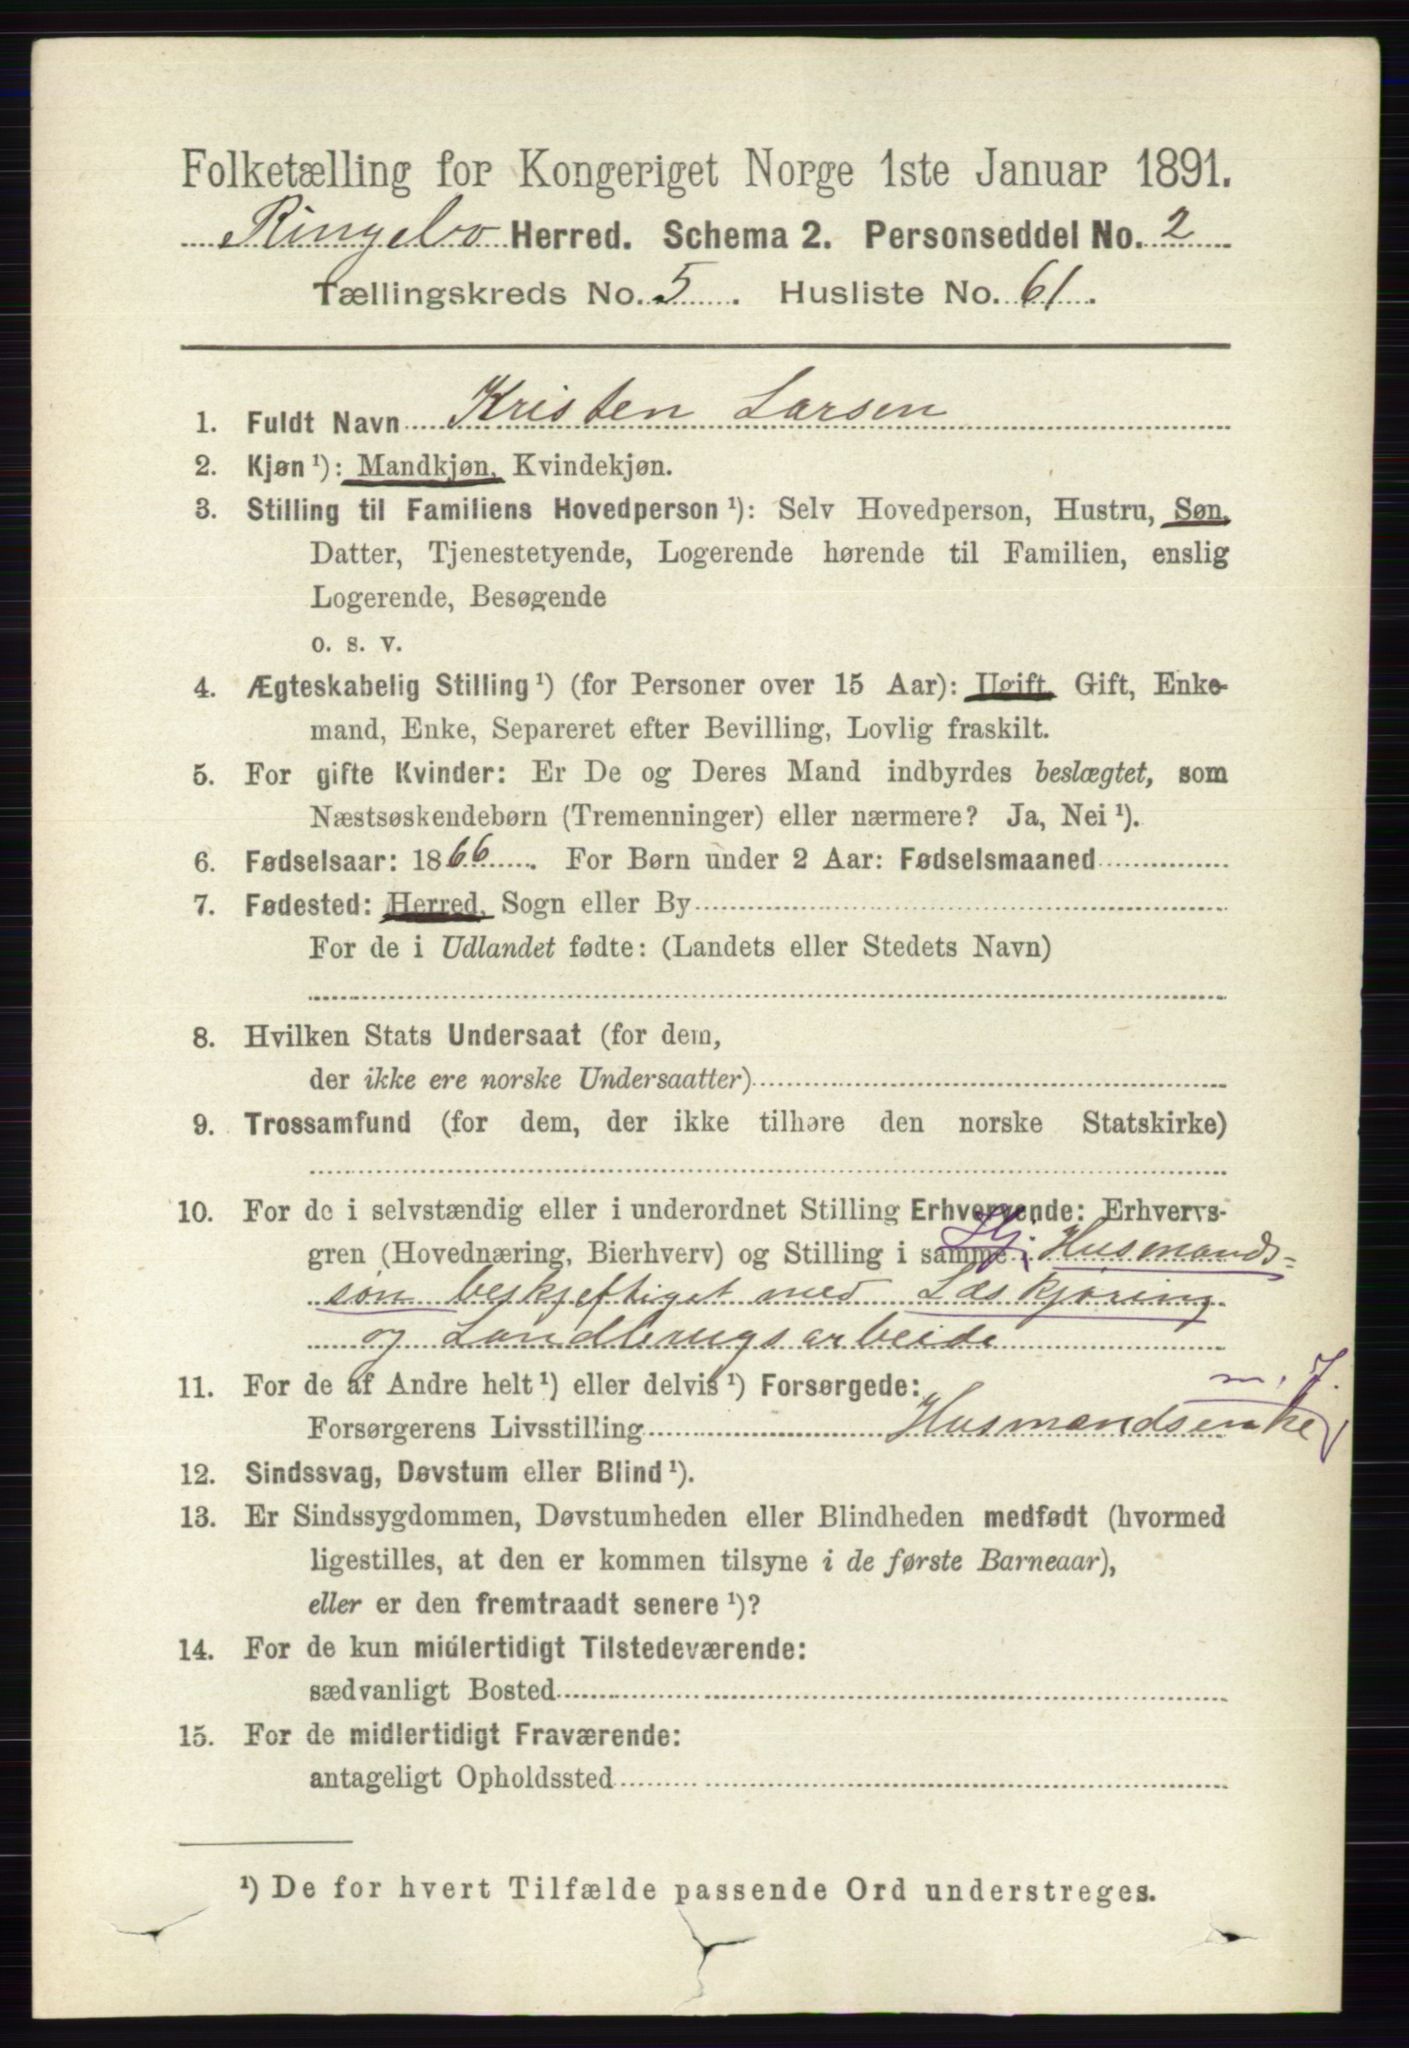 Folketælling for Kongeriget Norge 1ste Januar 1891.
Ringebo Herred. Schema 2. Personseddel No. 2
Tællingskreds No. 5. Husliste No. 61.
1. Fuldt Navn Kristen Larsen
2. Kjøn ¹): Mandkjøn, Kvindekjøn.
3. Stilling til Familiens Hovedperson ¹): Selv Hovedperson, Hustru, Søn,
Datter, Tjenestetyende, Logerende hørende til Familien, enslig
Logerende, Besøgende
o. s. v.
4. Ægteskabelig Stilling ¹) (for Personer over 15 Aar): Ugift, Gift, Enke-
mand, Enke, Separeret efter Bevilling, Lovlig fraskilt.
5. For gifte Kvinder: Er De og Deres Mand indbyrdes beslægtet, som
Næstsøskendebørn (Tremenninger) eller nærmere? Ja, Nei ¹).
6. Fødselsaar: 1866. For Børn under 2 Aar: Fødselsmaaned
7. Fødested: Herred, Sogn eller By
For de i Udlandet fødte: (Landets eller Stedets Navn)
8. Hvilken Stats Undersaat (for dem,
der ikke ere norske Undersaatter)
9. Trossamfund (for dem, der ikke tilhøre den norske Statskirke)
10. For de i selvstændig eller i underordnet Stilling Erhvervende: Erhvervs-
gren (Hovednæring, Bierhverv) og Stilling i samme. Husmands-
søn beskjeftiget med Læskjøring
og Landbrugsarbeide
11. For de af Andre helt ¹) eller delvis ¹) Forsørgede:
m. J.
Forsørgerens Livsstilling Husmandsenke
12. Sindssvag, Døvstum eller Blind ¹).
13. Er Sindssygdommen, Døvstumheden eller Blindheden medfødt (hvormed
ligestilles, at den er kommen tilsyne i de første Barneaar),
eller er den fremtraadt senere ¹)?
14. For de kun midlertidigt Tilstedeværende:
sædvanligt Bosted
15. For de midlertidigt Fraværende:
antageligt Opholdssted
¹) De for hvert Tilfælde passende Ord understreges.